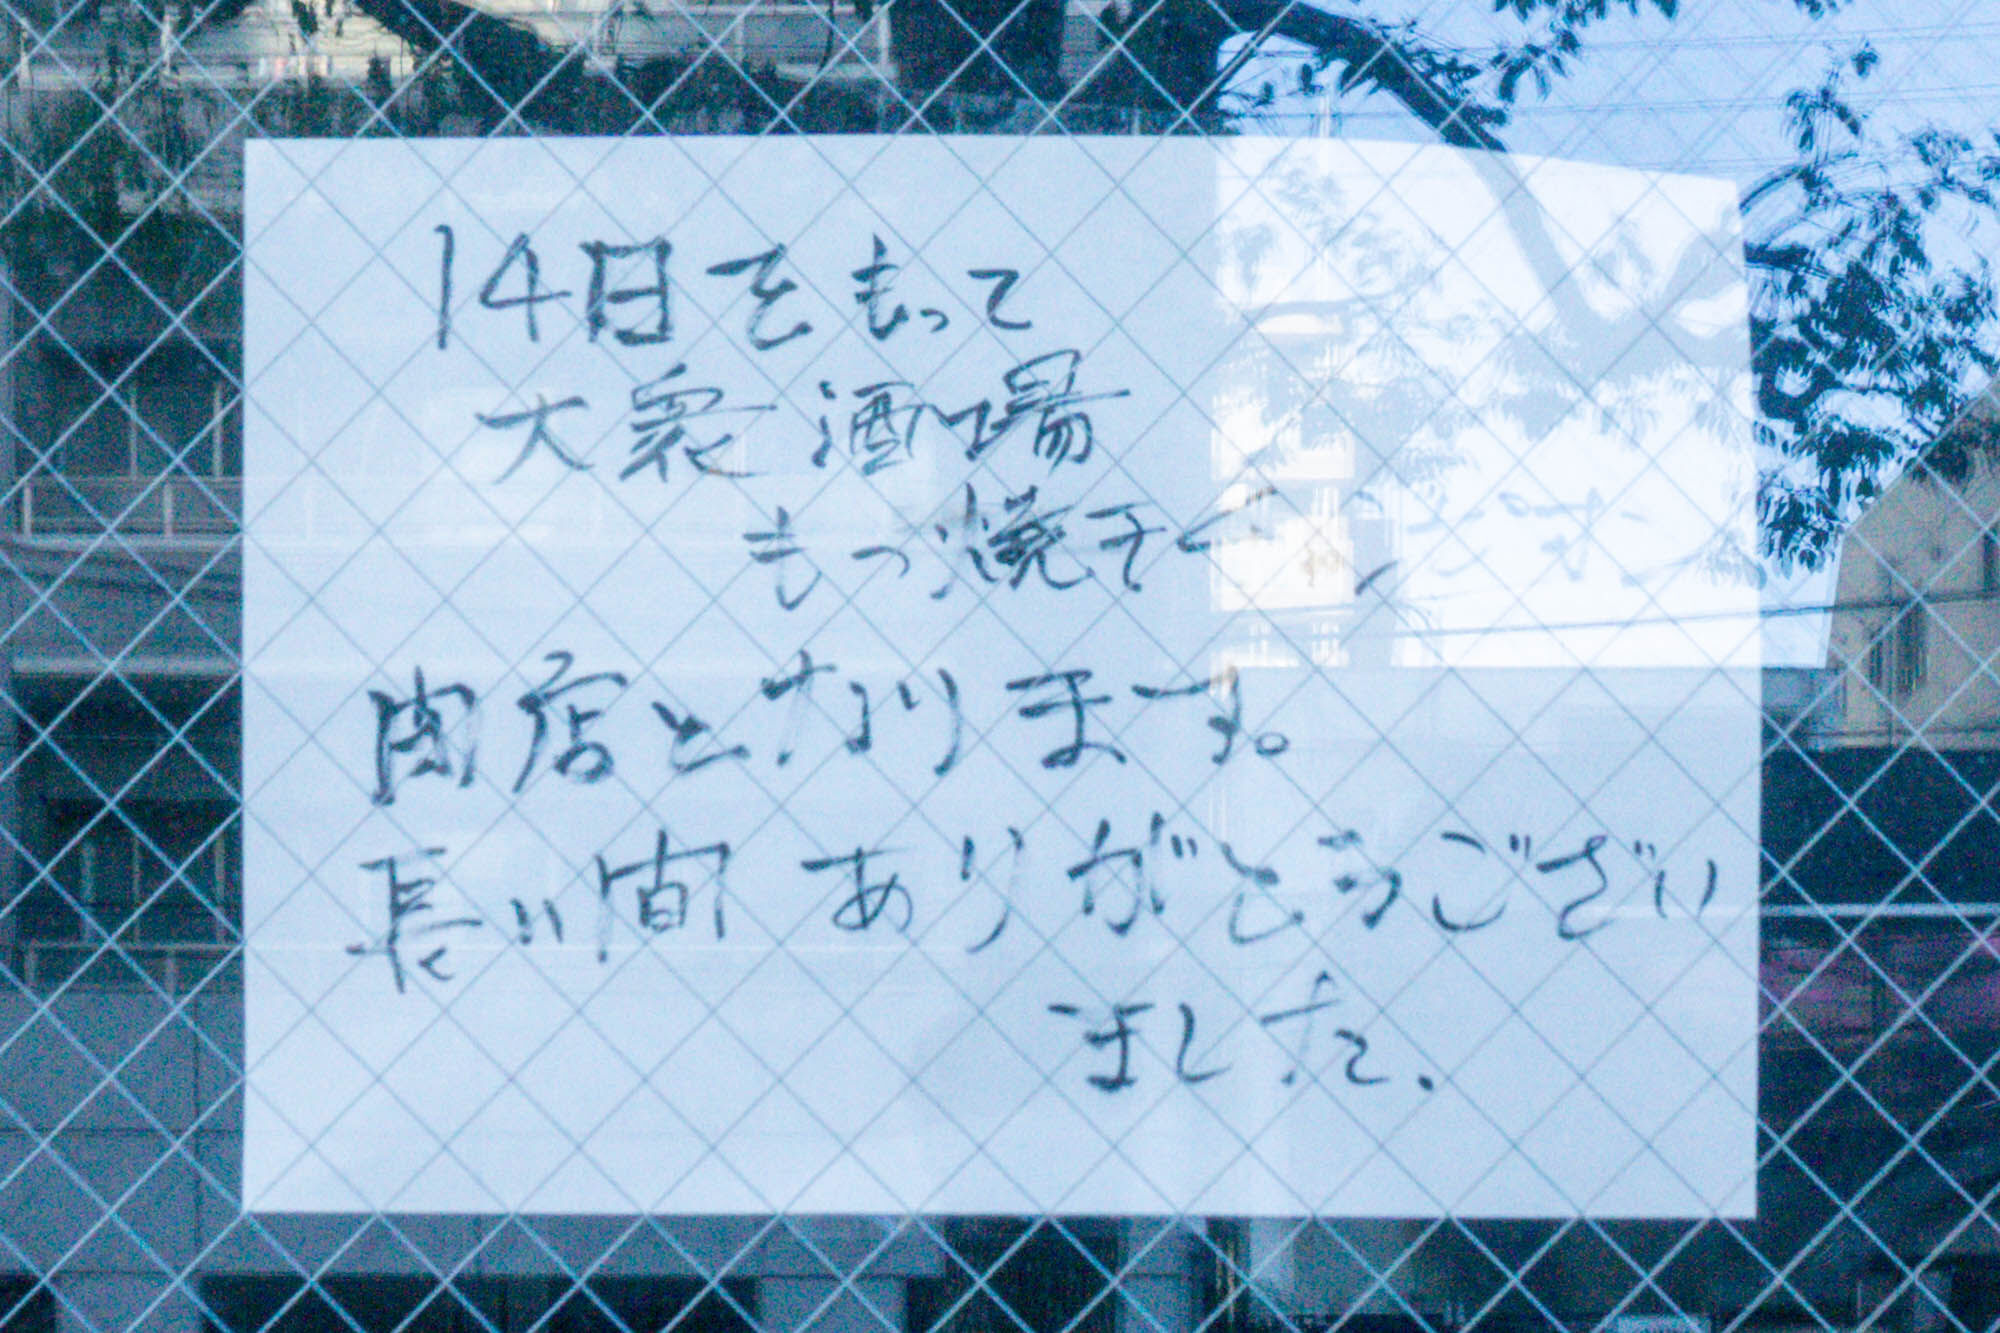 14日をもって
大衆酒場
もつ焼き
閉店となります。
長い間ありがとうござい
ました.